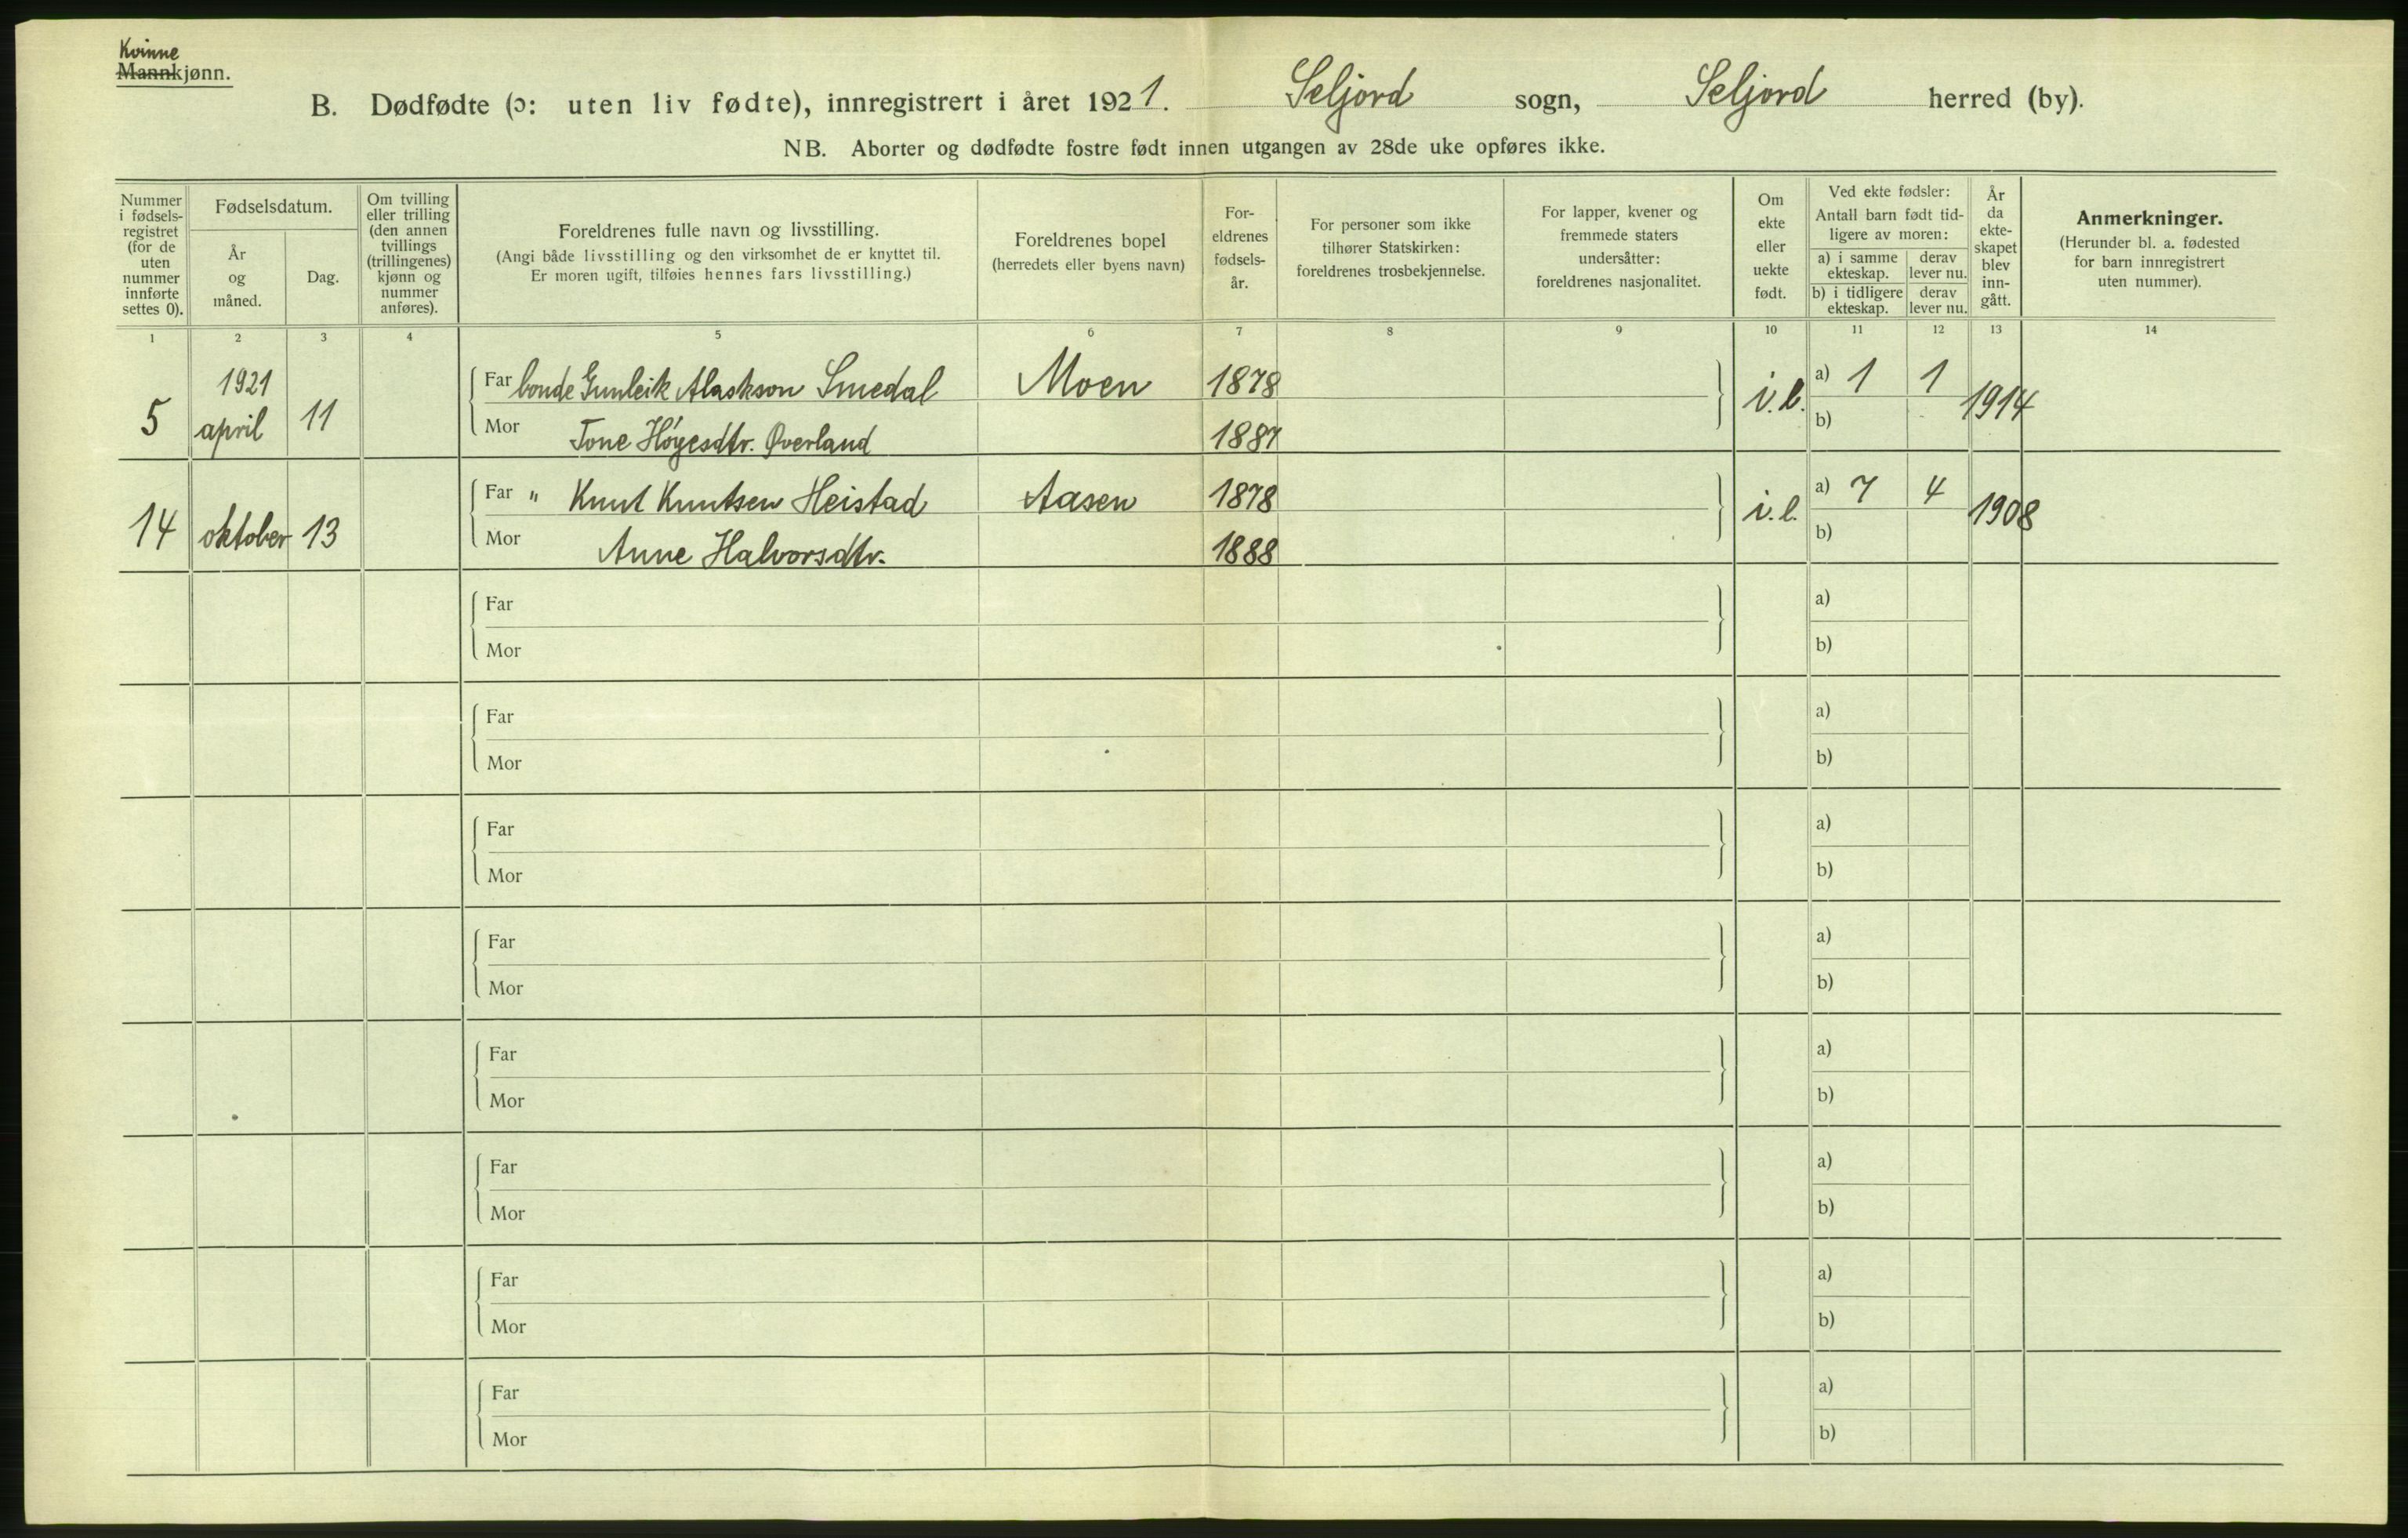 Kvinne
Mannkjønn.
B. Dødfødte (ɔ: uten liv fødte), innregistrert i året 1921. Seljord sogn, Seljord herred (by).
NB. Aborter og dødfødte fostre født innen utgangen av 28de uke opføres ikke.
Nummer
i fødsels-
registret
(for de
uten
nummer
innførte
settes 0).
Fødselsdatum.
År
og
måned.
Dag.
Om tvilling
eller trilling
(den annen
tvillings
(trillingenes)
kjønn og
nummer
anføres).
Foreldrenes fulle navn og livsstilling.
(Angi både livsstilling og den virksomhet de er knyttet til.
Er moren ugift, tilføies hennes fars livsstilling.)
Foreldrenes bopel
(herredets eller byens navn)
For-
eldrenes
fødsels-
år.
For personer som ikke
tilhører Statskirken:
foreldrenes trosbekjennelse.
For lapper, kvener og
fremmede staters
undersåtter:
foreldrenes nasjonalitet.
Om
ekte
eller
uekte
født.
Ved ekte fødsler:
Antall barn født tid-
ligere av moren:
a) i samme
ekteskap.
derav
lever nu.
b) i tidligere
ekteskap.
derav
lever nu.
År
da
ekte-
skapet
blev
inn-
gått.
Anmerkninger.
(Herunder bl. a. fødested
for barn innregistrert
uten nummer).
1 2 3 4 5 6 7 8 9 10 11 12 13 14
5 1921 april 11
Far bonde Gunleik Alaskson Smedal Moen 1878 i.e. a) 1 1 1914
Mor Tone Høgesdtr. Øverland 1887 b)
14 oktober 13
Far " Knut Knutsen Heistad Aasen 1878 i.e. a) 7 4 1908
Mor Anne Halvorsdtr. 1888 b)
Far a)
Mor b)
Far a)
Mor b)
Far a)
Mor b)
Far a)
Mor b)
Far a)
Mor b)
Far a)
Mor b)
Far a)
Mor b)
Far a)
Mor b)